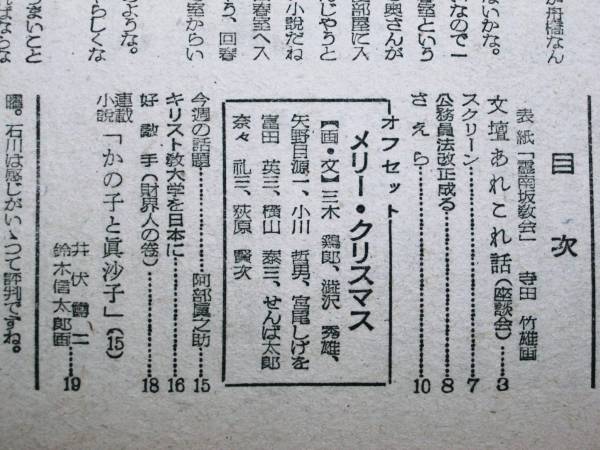 加舟橋なん
ないかな。
なので一
室という
る奥さんが
部屋に入
んじやうと
小説だね
春室へス
う、回春
室からい
ような。
らしくな
まいこと
目次
表紙「霊南坂教会」 寺田 竹雄画
文壇あれこれ話(座談会)…3
スクリーン…7
公務員法改正成る…8
さえら…10
オフセット
メリー・クリスマス
【画・文】三木 鶏郎、渋沢 秀雄、
矢野目源一、小川 哲男、宮尾しげを
富田 英三、横山 泰三、せんば太郎
奈々 礼三、荻原 賢次
今週の話題…阿部眞之助…15
キリスト教大学を日本に…16
好敵手(財界人の巻)…18
連載小説「かの子と眞沙子」(15)
井伏鱒二
鈴木信太郎画…19
曙。石川は感じがいゝつて評判ですね。